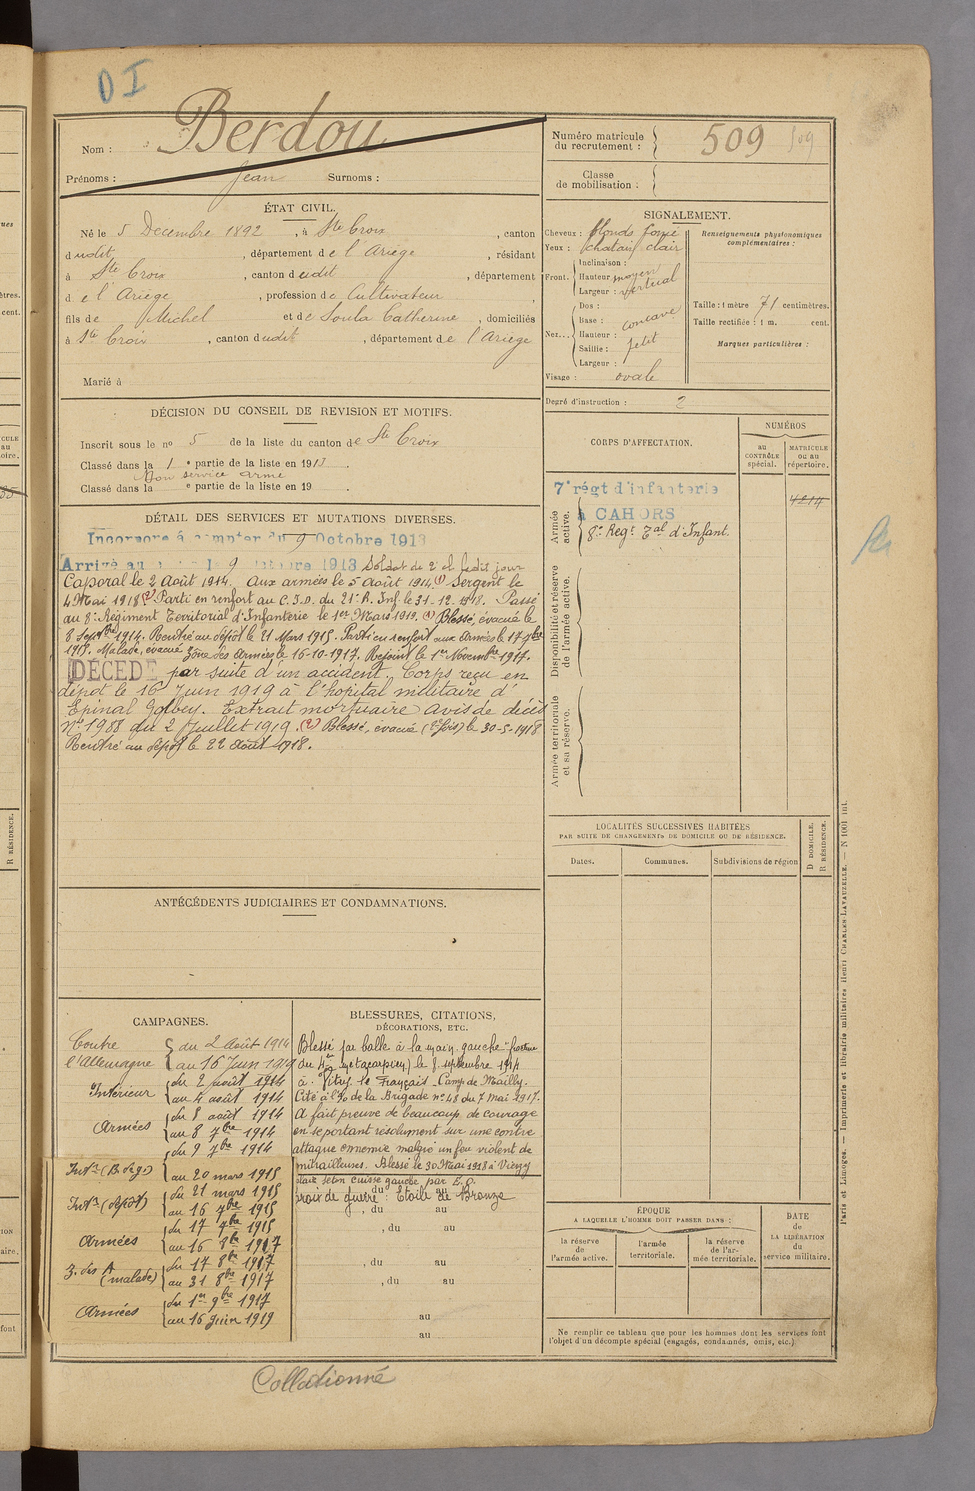 D I
Nom : Berdou
Prénoms : Jean Surnoms :
Numéro matricule
du recrutement : 509 509
Classe
de mobilisation :
ÉTAT CIVIL.
Né le 5 Decembre 1892, à Ste Croix, canton
dudit, département de l'Ariège, résidant
à Ste Croix, canton dudit, département
de l'Ariège, profession de Cultivateur,
fils de Michel et de Soula Catherine, domiciliés
à Ste Croix, canton dudit, département de l'Ariège
Marié à
SIGNALEMENT.
Cheveux : blonds foncé
Yeux : chatain clair
Front. Inclinaison :
Hauteur moyen
Largeur : vertical
Nez... Dos :
Base : concave
Hauteur :
Saillie : petit
Largeur :
Visage : ovale
Renseignements physionomiques
complémentaires :
Taille : 1 mètre 71 centimètres.
Taille rectifiée : 1 m. cent.
Marques particulières :
Degré d'instruction : 2
DÉCISION DU CONSEIL DE REVISION ET MOTIFS.
Inscrit sous le no 5 de la liste du canton de Ste Croix
Classé dans la 1 e partie de la liste en 1913.
Bon service armé
Classé dans la e partie de la liste en 19
CORPS D'AFFECTATION.
NUMÉROS
au
CONTRÔLE
spécial.
MATRICULE
ou au
répertoire.
Armée
active.
7e régt d'infanterie
à CAHORS
8e Regt Tal d'Infant.
4214
Disponibilité et réserve
de l'armée active.
Armée territoriale
et sa réserve.
DÉTAIL DES SERVICES ET MUTATIONS DIVERSES.
Incorporé à compter du 9 Octobre 1913
Arrivé au 9 octobre 1913 Soldat de 2e cl. ledit jour
Caporal le 2 Août 1914. Aux armées le 5 Août 1914 (1) Sergent le
4 Mai 1918 (2) Parti en renfort au C.I.D. du 21e R. Inf. le 31-12-1918. Passé
au 8e Régiment Territorial d'Infanterie le 1er Mars 1919. (1) Blessé, évacué le
8 Septbre 1914. Rentré au dépôt le 21 Mars 1915. Parti en renfort aux Armées le 17 7bre
1915. Malade, évacué Zône des Armées le 16-10-1917. Rejoint le 1er Novembre 1917.
DÉCÉDÉ par suite d'un accident. Corps reçu en
dépot le 16 Juin 1919 à l'hôpital militaire d'
Epinal Golbey. Extrait mortuaire avis de décès
No 1988 du 2 Juillet 1919. (2) Blessé, évacué (2e fois) le 30-5-1918
Rentré au dépôt le 22 Août 1918.
ANTÉCÉDENTS JUDICIAIRES ET CONDAMNATIONS.
LOCALITÉS SUCCESSIVES HABITÉES
PAR SUITE DE CHANGEMENTS DE DOMICILE OU DE RÉSIDENCE.
Dates.
Communes.
Subdivisions de région
D DOMICILE.
R RÉSIDENCE.
CAMPAGNES.
Contre du 2 Août 1914
l'Allemagne au 16 Juin 1919
Intérieur du 2 août 1914
au 4 août 1914
Armées du 5 août 1914
au 8 7bre 1914
du 9 7bre 1914
Intr (B. Og.) au 20 mars 1915
Intr (dépôt) du 21 mars 1915
au 16 7bre 1915
Armées du 17 7bre 1915
au 16 8bre 1917
Z. des A du 17 8bre 1917
(malade) au 31 8bre 1917
Armées du 1er 9bre 1917
au 16 juin 1919
BLESSURES, CITATIONS,
DÉCORATIONS, ETC.
Blessé par balle à la main gauche "fracture
du 4me métacarpien) le 8 septembre 1914
à Vitry le Français - Camp de Mailly.
Cité à l'o/ de la Brigade no 48 du 7 Mai 1917.
A fait preuve de beaucoup de courage
en se portant résolument sur une contre
attaque ennemie malgré un feu violent de
mitrailleuses. Blessé le 30 Mai 1918 à Vierzy
plaie séton cuisse gauche par E.O.
Croix de guerre. Etoile de Bronze
, du au
, du au
, du au
, du au
au
au
ÉPOQUE
A LAQUELLE L'HOMME DOIT PASSER DANS :
la réserve
de
l'armée active.
l'armée
territoriale.
la réserve
de l'ar-
mée territoriale.
DATE
de
LA LIBÉRATION
du
service militaire.
Ne remplir ce tableau que pour les hommes dont les services font
l'objet d'un décompte spécial (engagés, condamnés, omis, etc.)
Paris et Limoges. — Imprimerie et librairie militaires Henri CHARLES-LAVAUZELLE. — N 1001 int.
Collationné